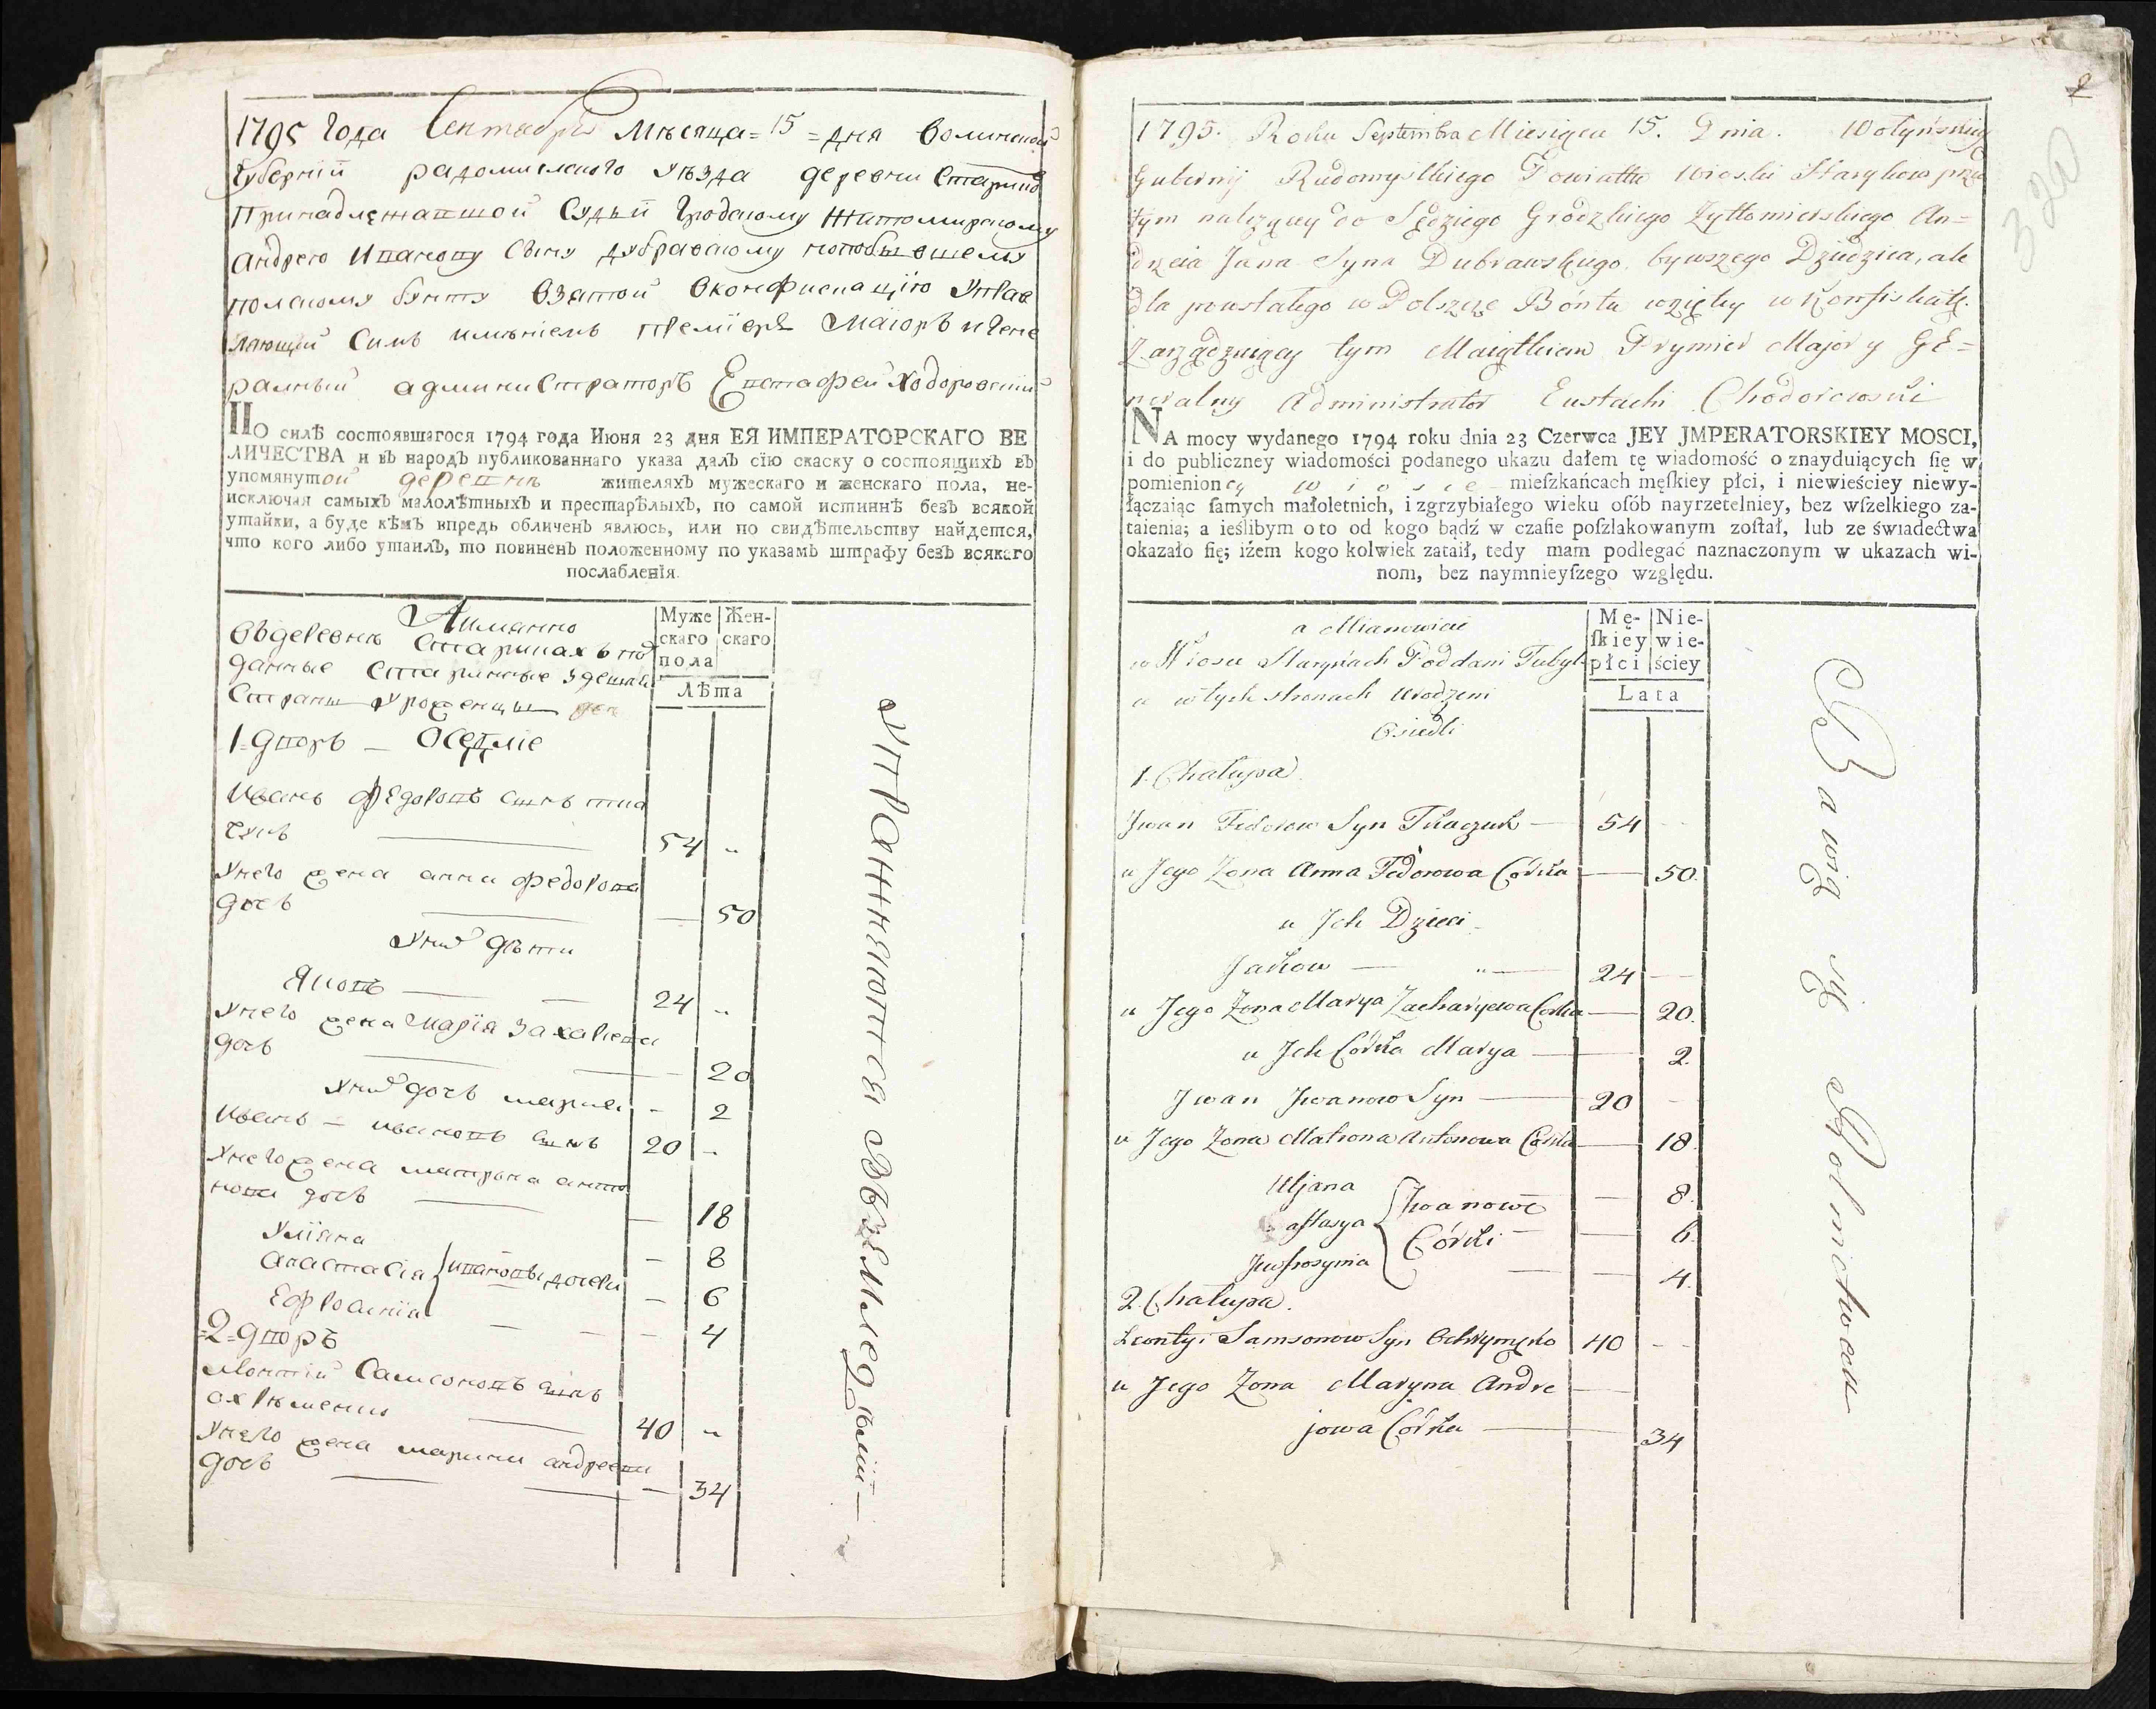 1795 Года Сентября мѣсяца = 15 = дня Волынской
Губернїи радомысльского уѣзда деревни Старинъ
Принадлежавшой Судьи Гродскому Житомирскому
Андрею Иванову Сыну дубравскому
польскому бунту взятой вконфискацїю Управ
ляющїй Симъ имѣнїемъ премїеръ Маїоръ и Гене
ральный администраторъ Евстафей Ходоровскїй
ПО силѣ состоявшагося 1794 года Июня 23 дня ЕЯ ИМПЕРАТОРСКАГО ВЕ
ЛИЧЕСТВА и въ народъ публикованнаго указа далъ сїю скаску о состоящихъ въ
упомянутой деревнѣ жителяхъ мужескаго и женскаго пола, не-
исключая самыхъ малолѣтныхъ и престарѣлыхъ, по самой истиннѣ безъ всякой
утайки, а буде кѣмъ впредь обличенъ явлюсь, или по свидѣтельству найдется,
что кого либо утаилъ, то повиненъ положенному по указамъ штрафу безъ всякаго
послабленїя.
Аимянно
Муже Жен-
скаго скаго
пола
Лѣта
Въдеревнѣ Старинахъ под
данные Старинные здешней
Страны уроженцы
1 = дворъ — Оседлїе
Иванъ Федоровъ сынъ тка
чукъ — 54 „
Унего жена анна федорова
дочъ — 50
Унихъ дѣти
Яковъ — 24 „
Унего жена Марїя Захарева
дочъ — 20
Унихъ дочъ мария - 2
Иванъ — ивановъ сынъ 20 -
Унего жена матрона анто
нова дочъ — 18
Улїяна — 8
Анастасїя { ивановы дочери — 6
Ефросинїя — 4
=2= дворъ
Леонтїй Самсоновъ сынъ
охрѣменко — 40 „
Унего жена марина андреева
дочъ — 34
Управняются Въземледѣлїи —
2
320
1795. Roku Septembra Miesiąca 15. Dnia. Wołyńskiey
Gubernij Radomyslkiego Powiattu wioski Starykow przed
tym nalezący do Sędziego Grodzkiego Zyttomierskiego An=
drzeia Jana Syna Dubrawskiego, bywszego Dziedzica, ale
dla powstałego w Polszcze Bontu wzięty w Konfiskatę.
Zarządzaiący tym Maiątkiem Prymier Major y GE=
neralny Administrator Eustachi Chodorowski
NA mocy wydanego 1794 roku dnia 23 Czerwca JEY JMPERATORSKIEY MOSCI,
i do publiczney wiadomości podanego ukazu dałem tę wiadomość o znayduiących ſię w
pomienioney wiosce mieſzkańcach męſkiey płci, i niewieściey niewy-
łączaiąc ſamych małoletnich, i zgrzybiałego wieku oſób nayrzetelniey, bez wſzelkiego za-
taienia; a ieślibym o to od kogo bądź w czaſie poſzlakowanym zoſtał, lub ze świadectwa
okazało ſię; iżem kogo kolwiek zataił, tedy mam podlegać naznaczonym w ukazach wi-
nom, bez naymnieyſzego względu.
a Mianowicie
Mę- Nie-
ſkiey wie-
płci ściey
Lata
w Wiosce Starykach Poddani Tubyl
w tych stronach urodzeni
Osiedli
1. Chałupa.
Jwan Fedorow Syn Tkaczuk — 54 --
u Jego Zona Anna Fedorowa Córka — 50.
u Jch Dzieci
Jakow — „ — 24 —
u Jego Zona Marya Zacharyewa Corka — 20.
u Jch Córka Marya — 2.
Jwan Jwanow Syn — 20 -
u Jego Zona Matrona Antonowa Córka — 18.
Uljana — 8.
astasya { Jwanowe Córki — 6.
Jewfrosynia — 4.
2. Chałupa.
Leontyi Samsonow Syn Ochrymęko 40 --
u Jego Zona Maryna Andre
jowa Córka — 34
Bawią się Rolnictwem